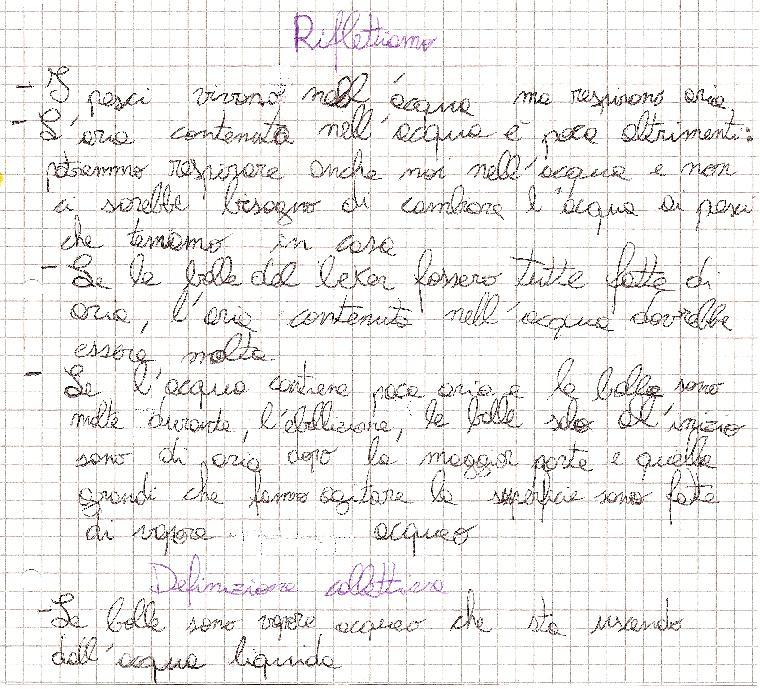 Riflettiamo
- I pesci vivono nell'acqua ma respirano aria
- L'aria contenuta nell'acqua è poca altrimenti:
potremmo respirare anche noi nell'acqua e non
ci sarebbe bisogno di cambiare l'acqua ai pesci
che teniamo in casa
- Se le bolle del beker fossero tutte fatte di
aria, l'aria contenuta nell'acqua dovrebbe
essere molta
- Se l'acqua contiene poca aria e le bolle sono
molte durante, l'ebollizione, le bolle solo all'inizio
sono di aria dopo la maggior parte e quelle
grandi che fanno agitare la superficie sono fatte
di vapore acqueo
Definizione collettiva
- Le bolle sono vapore acqueo che sta uscendo
dall'acqua liquida